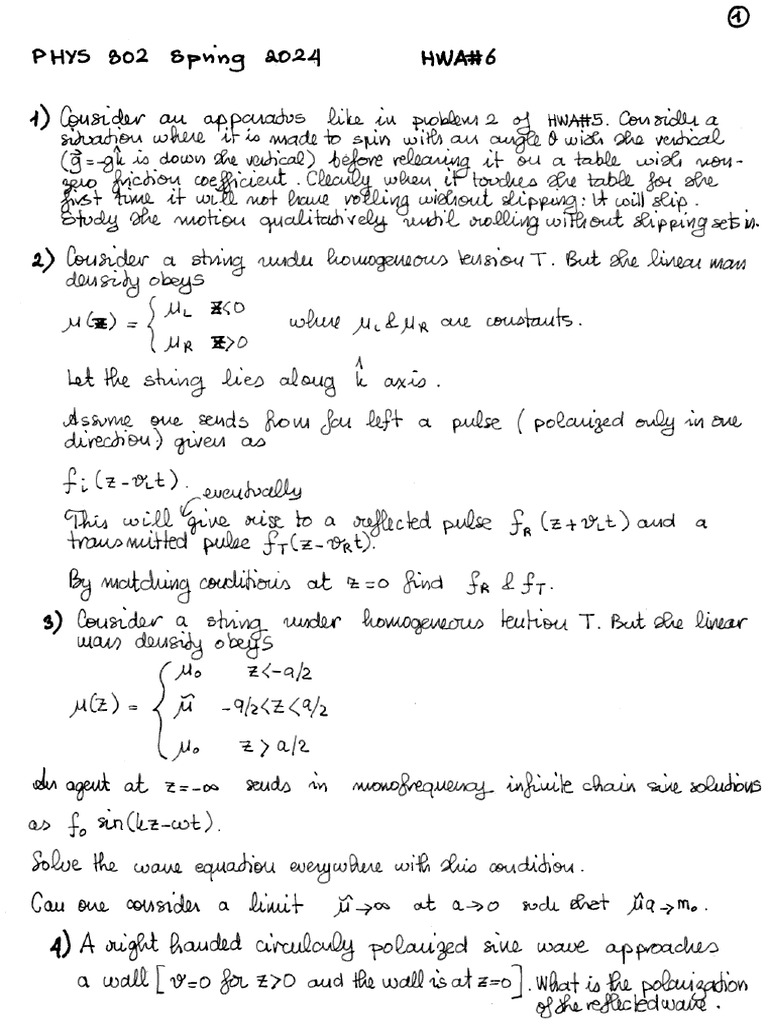 ①
PHYS 802 Spring 2024 HWA#6
1) Consider an apparatus like in problem 2 of HWA#5. Consider a
situation where it is made to spin with an angle θ with the vertical
(g⃗=-gk̂ is down the vertical) before releasing it on a table with non-
zero friction coefficient. Clearly when it touches the table for the
first time it will not have rolling without slipping: It will slip.
Study the motion qualitatively until rolling without slipping sets in.
2) Consider a string under homogeneous tension T. But the linear mass
density obeys
μ(z) = { μL z<0
μR z>0
where μL & μR are constants.
Let the string lies along k̂ axis.
Assume one sends from far left a pulse (polarized only in one
direction) given as
fi(z-vLt).
eventually
This will give rise to a reflected pulse fR(z+vLt) and a
transmitted pulse fT(z-vRt).
By matching conditions at z=0 find fR & fT.
3) Consider a string under homogeneous tention T. But the linear
mass density obeys
μ(z) = { μ0 z<-a/2
μ̃ -a/2<z<a/2
μ0 z>a/2
An agent at z=-∞ sends in monofrequency infinite chain sine solutions
as f0 sin(kz-ωt).
Solve the wave equation everywhere with this condition.
Can one consider a limit μ̃→∞ at a→0 such that μ̃a→m0.
4) A right handed circularly polarized sine wave approaches
a wall [v=0 for z>0 and the wall is at z=0]. What is the polarization
of the reflected wave.